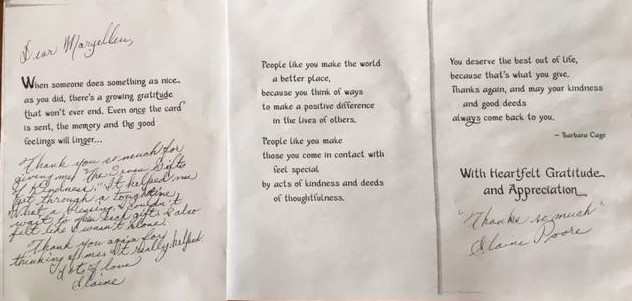 Dear Maryellen,
When someone does something as nice
as you did, there's a growing gratitude
that won't ever end. Even once the card
is sent, the memory and the good
feelings will linger...
Thank you so much for
giving me "The Seven Gifts
of Kindness." It helped me
get through a tough time.
What a blessing. I couldn't
wait to open each gift. I also
felt like I wasn't alone.
Thank you again for
thinking of me. It really helped.
Lots of love
Elaine
People like you make the world
a better place,
because you think of ways
to make a positive difference
in the lives of others.
People like you make
those you come in contact with
feel special
by acts of kindness and deeds
of thoughtfulness.
You deserve the best out of life,
because that's what you give.
Thanks again, and may your kindness
and good deeds
always come back to you.
– Barbara Cage
With Heartfelt Gratitude
and Appreciation
"Thanks so much"
Elaine Poore